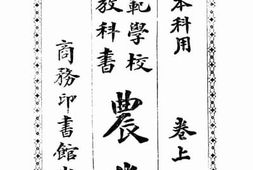 本科用 卷上
範學校
教科書
農
商務印書館